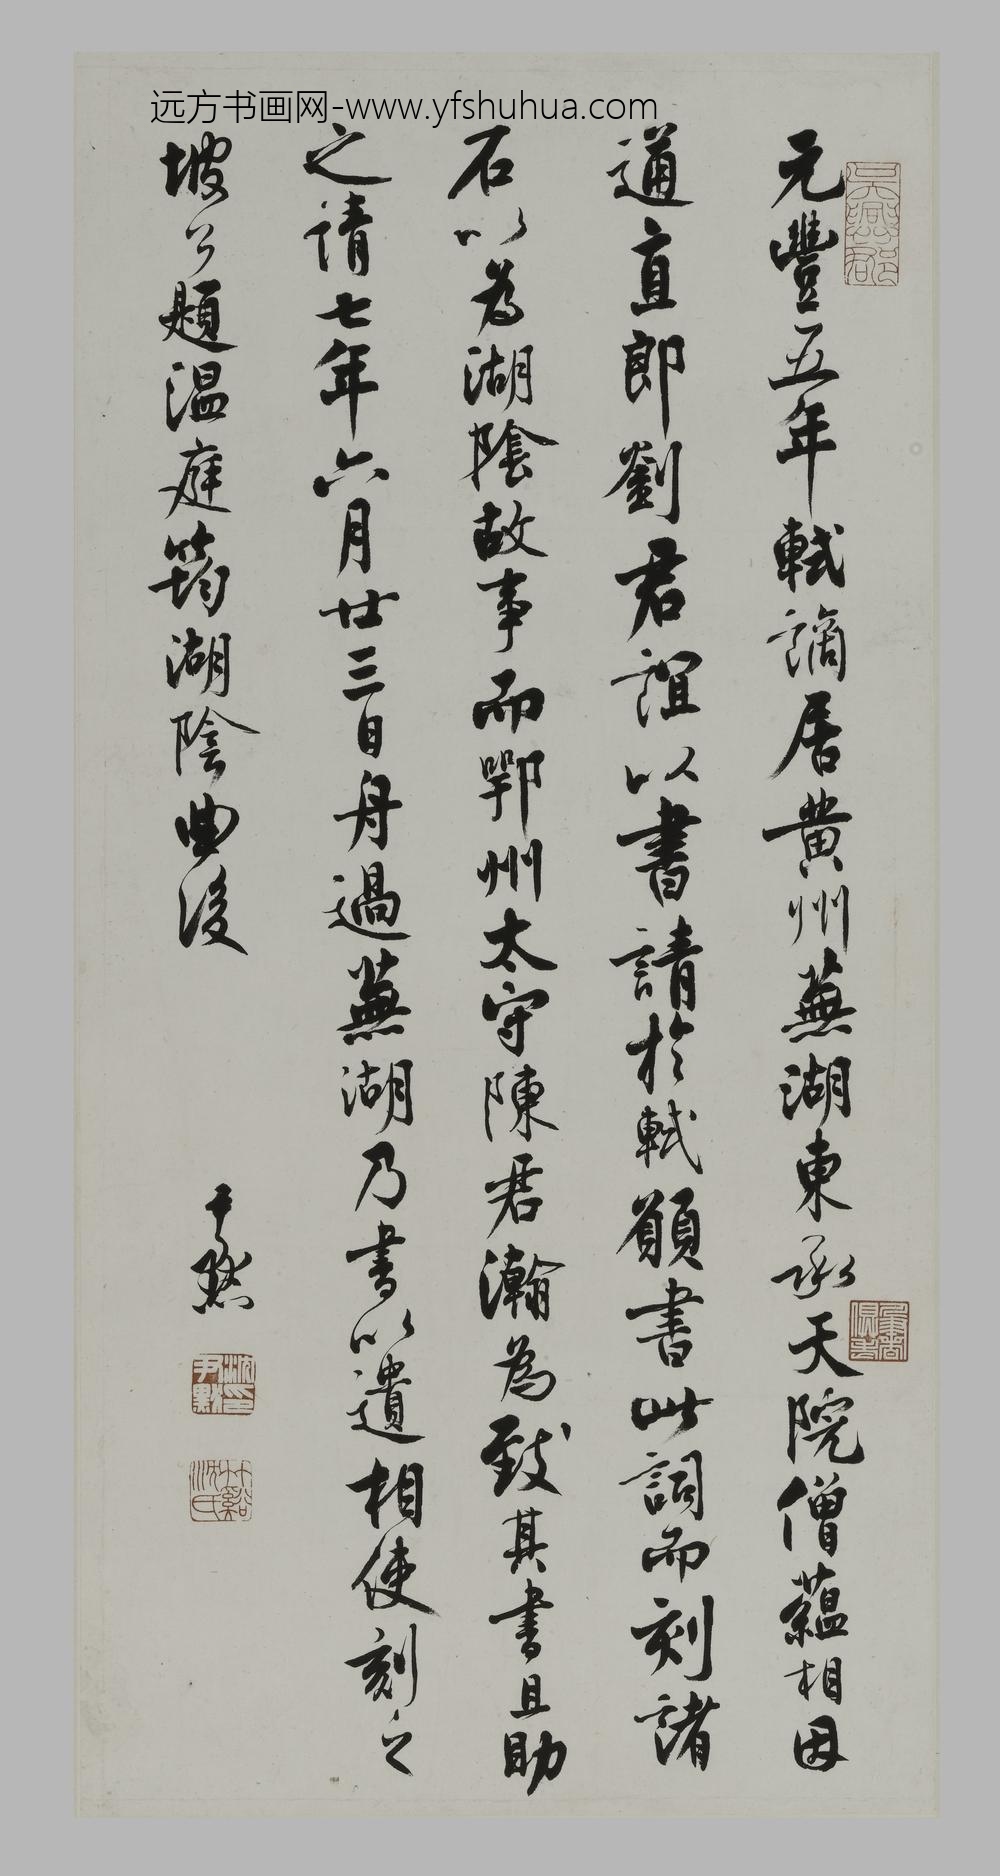 远方书画网-www.yfshuhua.com
元豐五年軾謫居黄州蕪湖東承天院僧藴相因
通直郎劉君誼以書請於軾願書此詞而刻諸
石以為湖陰故事而鄂州太守陳君瀚為致其書且助
之請七年六月廿三日舟過蕪湖乃書以遺相使刻之
坡公題温庭筠湖陰曲後
尹默
沈尹默印
竹谿沈氏